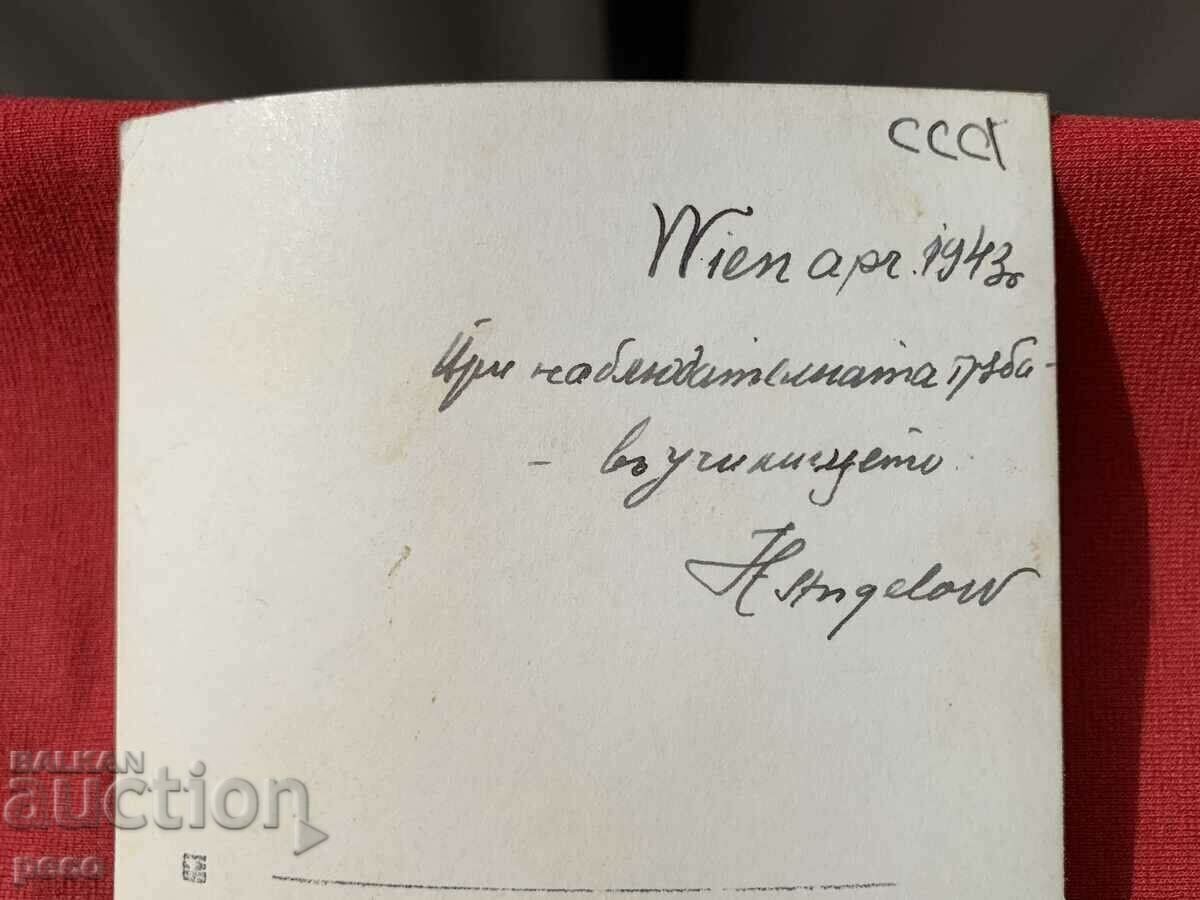 ссст
Wien apr. 1943 г.
При наблюдателната тръба -
- въ училището
H Angelow
BALKAN
auction
peco